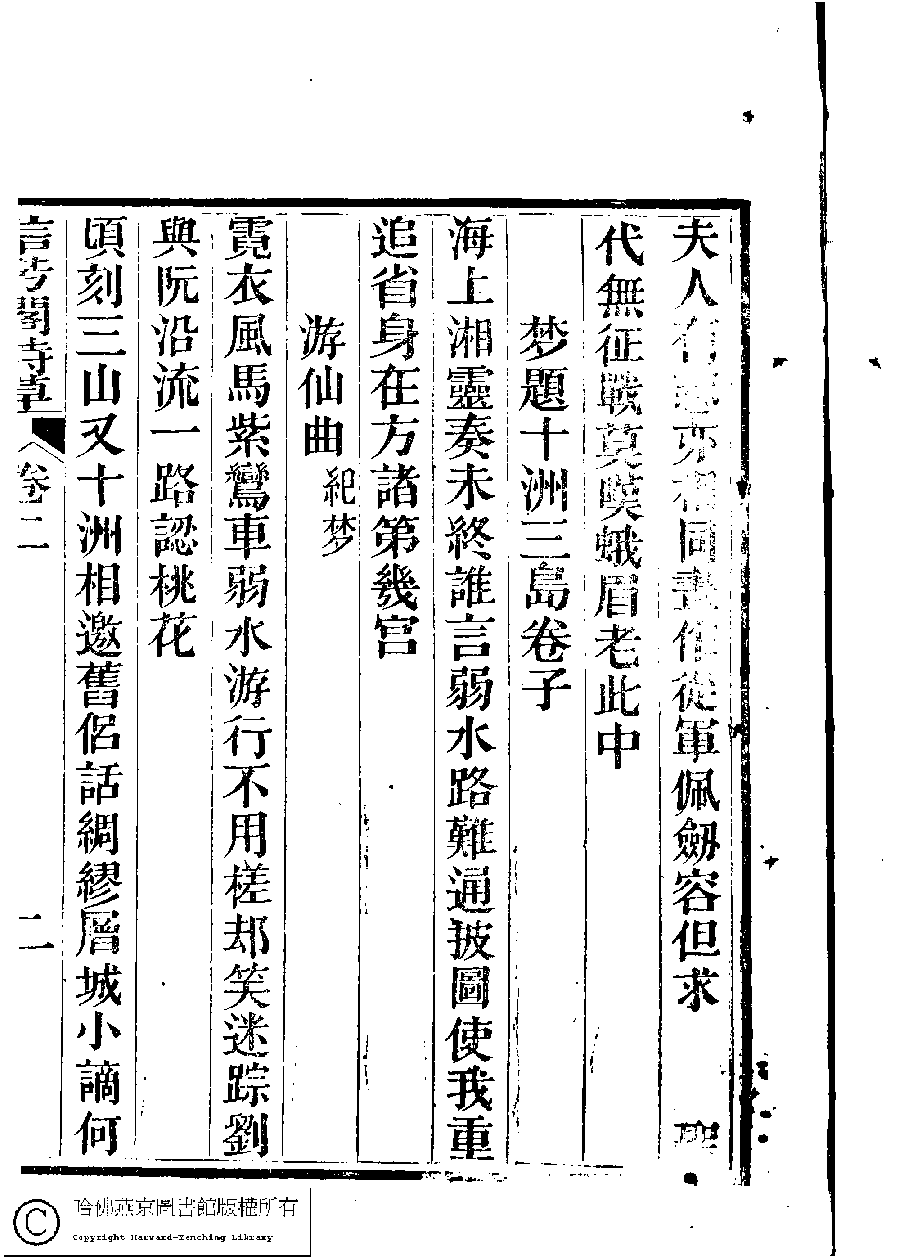 夫人有志亦相同畫作從軍佩劒容但求 聖
代無征戰莫嘆蛾眉老此中
梦題十洲三島卷子
海上湘靈奏未終誰言弱水路難通披圖使我重
追省身在方諸第幾宮
游仙曲 紀梦
霓衣風馬紫鸞車弱水游行不用槎却笑迷踪劉
與阮沿流一路認桃花
頃刻三山又十洲相邀舊侶話綢繆層城小謫何
閣詩草 卷二 二
哈佛燕京圖書館版權所有
Copyright Harvard-Yenching Library